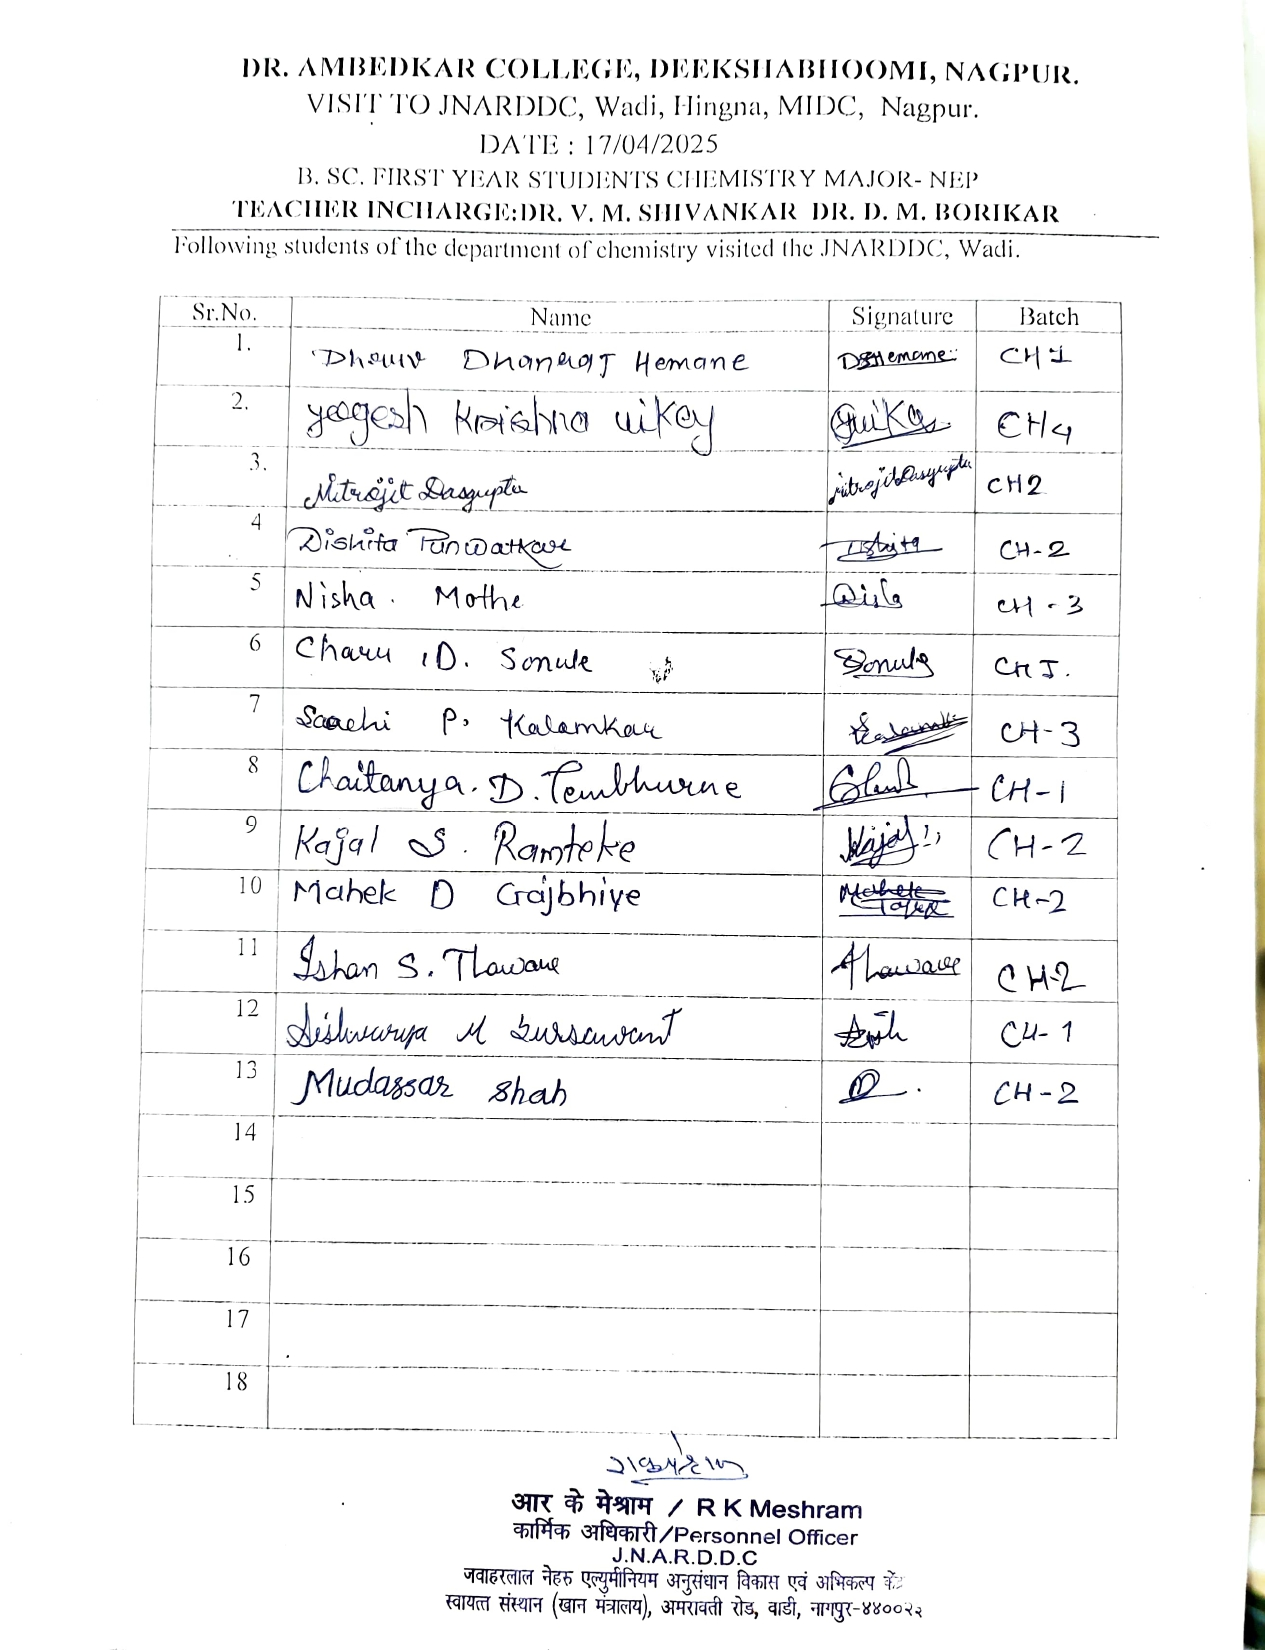 DR. AMBEDKAR COLLEGE, DEEKSHABHOOMI, NAGPUR.
VISIT TO JNARDDC, Wadi, Hingna, MIDC, Nagpur.
DATE : 17/04/2025
B. SC. FIRST YEAR STUDENTS CHEMISTRY MAJOR- NEP
TEACHER INCHARGE:DR. V. M. SHIVANKAR DR. D. M. BORIKAR
Following students of the department of chemistry visited the JNARDDC, Wadi.
Sr.No. Name Signature Batch
1. Dhanraj Hemane CH 1
2. yogesh Krishna uikey CH4
3. Mitrojit Dasgupta Mitrojit Dasgupta CH2
4 Dishita CH-2
5 Nisha. Mothe CH-3
6 Charu D. Sonule Sonule
7 Saachi P. Kalamkar CH-3
8 Chaitanya. D. Tembhurne CH-1
9 Kajal S. Ramteke Kajal CH-2
10 Mahek D Gajbhiye CH-2
11 Ishan S. CH-2
12 M CH-1
13 Mudassar Shah CH-2
14
15
16
17
18
आर के मेश्राम / R K Meshram
कार्मिक अधिकारी/Personnel Officer
J.N.A.R.D.D.C
जवाहरलाल नेहरु एल्युमीनियम अनुसंधान विकास एवं अभिकल्प
स्वायत्त संस्थान (खान मंत्रालय), अमरावती रोड, वाडी, नागपुर-४४००२३